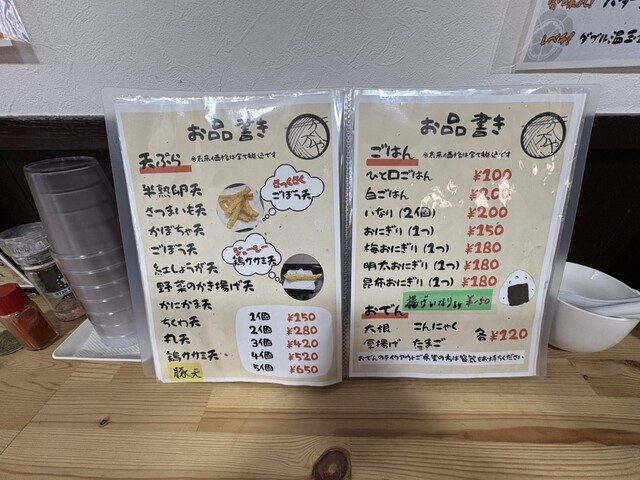 お品書き
天ぷら ※お示し価格は全て税込です
半熟卵天
さつまいも天
かぼちゃ天
ごぼう天
紅しょうが天
野菜のかき揚げ天
かにかま天
ちくわ天
丸天
鶏ササミ天
豚天
さっくさく
ごぼう天
鶏ササミ天
1個 ¥150
2個 ¥280
3個 ¥420
4個 ¥520
5個 ¥650
お品書き
ごはん ※お示し価格は全て税込です
ひと口ごはん ¥100
白ごはん ¥200
いなり(2個) ¥200
おにぎり(1つ) ¥150
梅おにぎり(1つ) ¥180
明太おにぎり(1つ) ¥180
昆布おにぎり(1つ) ¥180
おでん
大根 こんにゃく
厚揚げ たまご
各¥120
おでんのテイクアウトご希望の方は容器をお持ちください
ダブル温玉